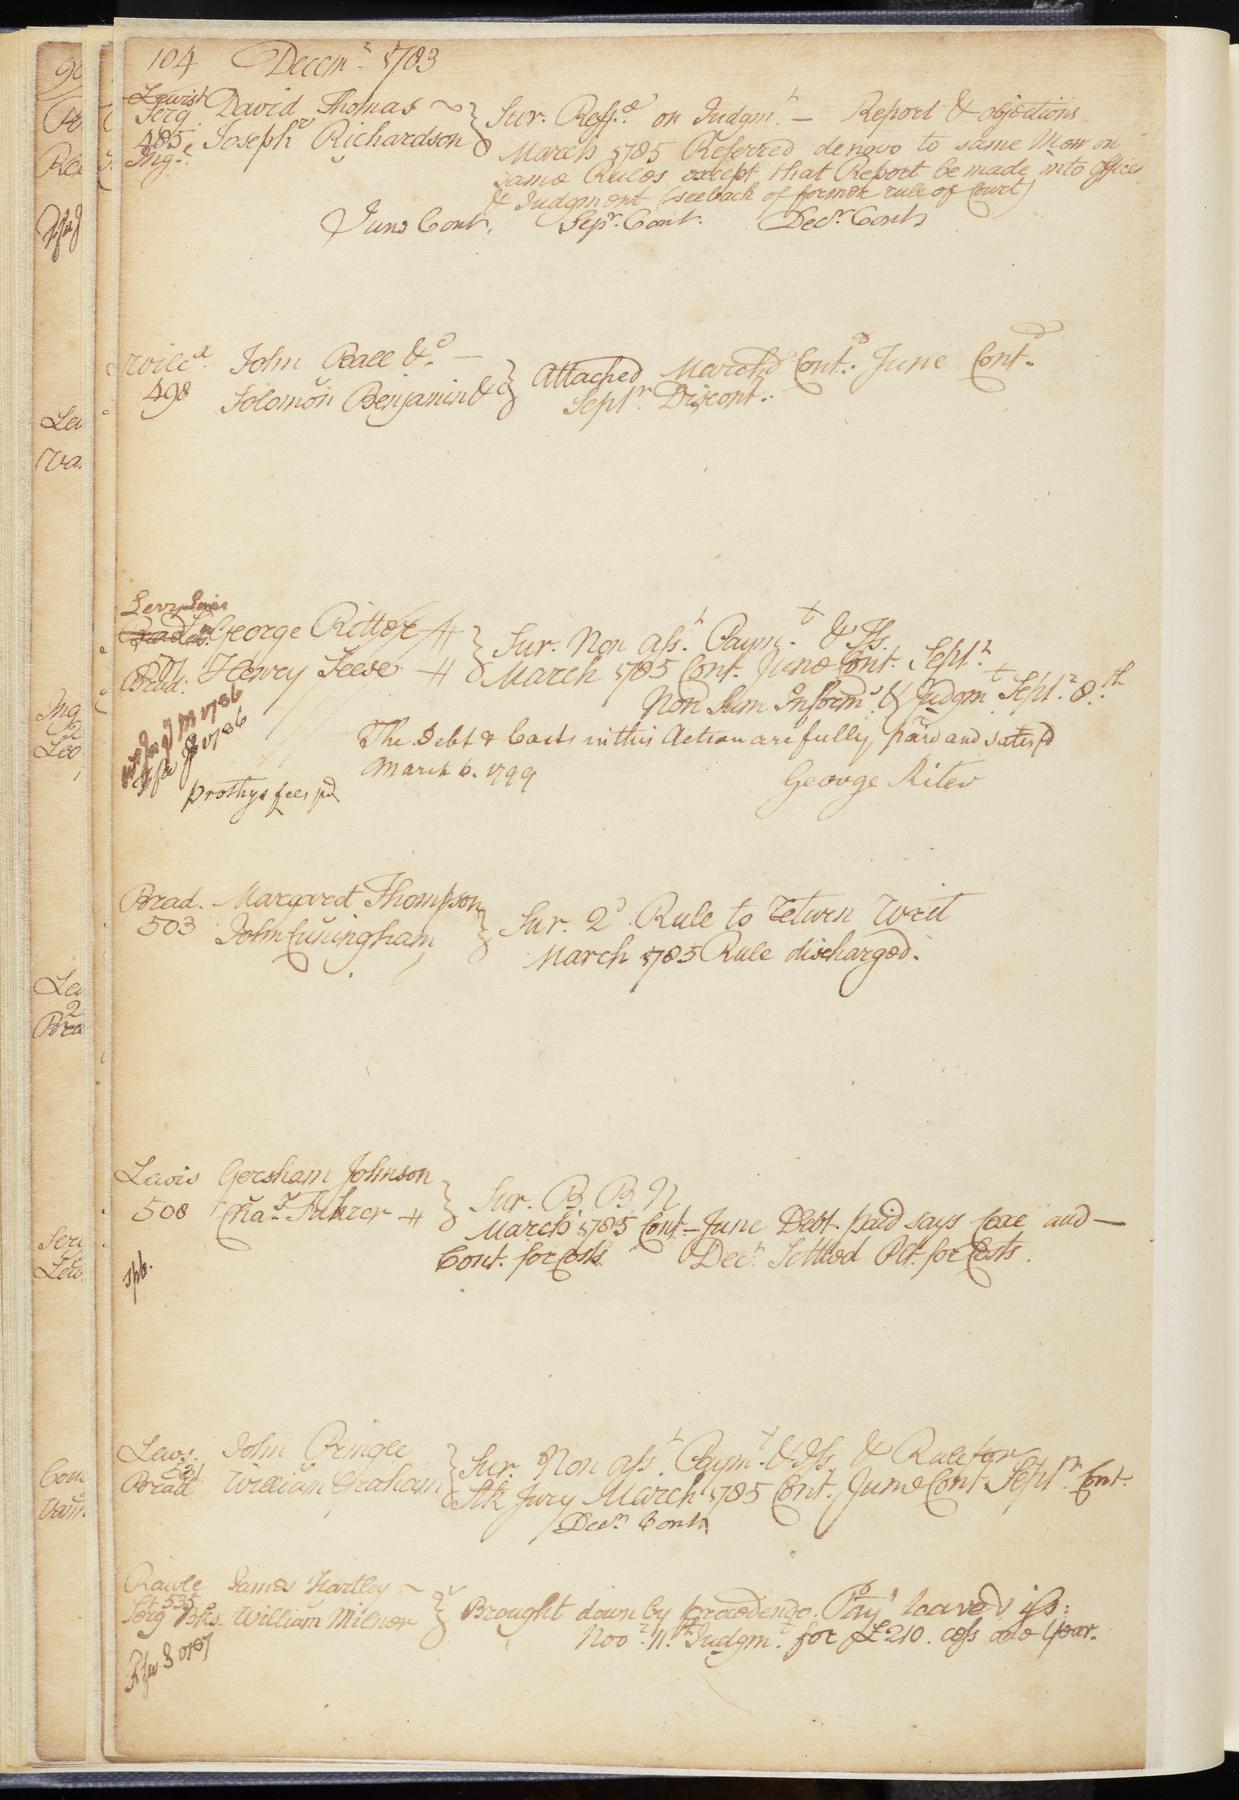 104 Decemr. 1783
Lewis
Serg. David Thomas
485 Joseph Richardson } Sur. Reffd. on Judgmt. — Report & objections
Ings. March 1785 Referred denovo to same Men on
same Rules except that Report be made into office
& Judgment (see back of former rule of Court)
June Cont. Sepr. Cont. Decr. Contd
Wilcx. John Ball &c. —
498 Solomon Benjamin &c } Attached March Contd. June Contd.
Septr. Discont.
Levy
George Ritter
Brad. Henry Seever } Sur. Non asst. Paymt. & Iss.
March 1785 Cont. June Cont. Septr.
Non Sum Informs. & Judgmt. Septr. 8th
The Debt & Costs in this Action are fully paid and satisfd
March 6. 1799 George Riter
prothys fees pd
Brad. Margaret Thompson
503 John Cuningham } Sur. 2d. Rule to return Writ
March 1785 Rule discharged.
Lewis Gersham Johnson
508 Chas. Fuhrer } Sur. B B N
March 1785 Cont - June Debt paid says Coxe and —
Cont. for Costs Decr. Settled Plt. for Costs.
Lews. John Pringle
Brad William Graham } Sur. Non asst. Paymt. & Iss. & Rule for
Stk Jury March 1785 Cont. June Cont Septr. Cont.
Decr. Contd
Rawle James Hartley
535
Serg William Milner } Brought down by procedendo.
Novr. 11th Judgmt. for £210. cess one Year.